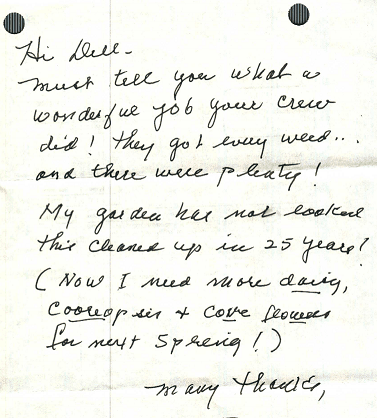 Hi Dell-
Must tell you what a
wonderful job your crew
did! They got every weed...
and there were plenty!
My garden has not looked
this cleaned up in 25 years!
(Now I need more daisy,
coreopsis + cone flowers
for next Spring!)
Many thanks,